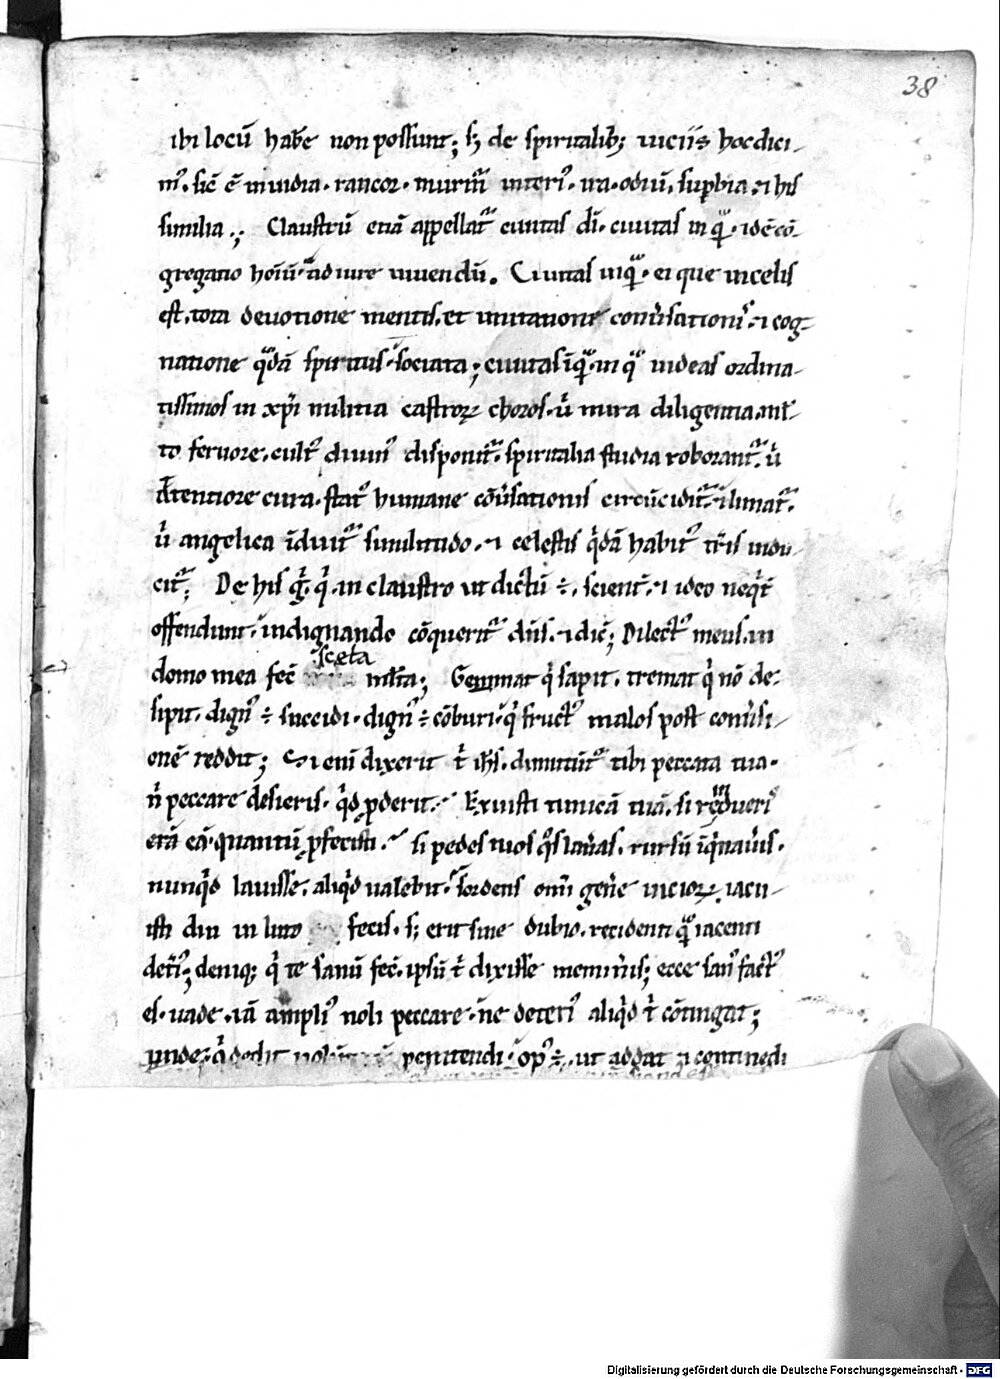 38
ibi locū habe non possunt; sʒ de spiritalibꝫ uiciis hoc dici-
mꝰ. sic̄ ē inuidia. rancor. murmͣ interiꝰ. ira. odiū. suꝑbia. ⁊ his
similia.; Claustrū etiā appellatͣ ciuitas dī. ciuitas in qͣ. idē cō-
gregatio hoīū ad iure uiuendū. Ciuitas inqͣ. ei que in celis
est. tota deuotione mentis. et imitatione conūsationiˢ. ⁊ cog-
natione qͣdā spiritus sociata; ciuitas īqͣ. in qͣ uideas ordina-
tissimos in xp̄i militia castroꝝ choros. ū mira diligentia. mł-
to feruore. cultꝰ diuinꝰ disponitͣ. spiritalia studia roborantͣ. ū
Attentiore cura. statꝰ humane cōūsationis circūciditͣ. ⁊ limatͣ.
ū angelica īduitͣ similitudo. ⁊ celestis qͥdā habitꝰ tr̄is indu-
citͣ; De his gͥ. qͥ. in claustro ut dictū ÷. scient̄. ⁊ ideo neqͥꝰ
offendunt. indignando cōqueritͣ dn̄s. ⁊ dic̄; Dilectꝰ meus. in
domo mea fec̄ scela mlta; Gemmat qͥ sapit. tremat qͥ nō de-
sipit. dignꝰ ÷ succidi. dignꝰ ÷ cōburi. qͥ fructꝰ malos post conūsi-
onē reddit; Si enī dixerit t̄ ih̄s. dimittūtͣ tibi peccata tua.
n̄ peccare desieris. qͥd ꝓderit. Exuisti tunicā tuā. si redueriˢ
eā. quantū ꝓfecisti. si pedes tuos qͦs lauͣas. rursū īqͥnaūis.
nunqͥd lauisse. aliqͥd ualebit. sordens omī gen̄e uicioꝝ. iacu-
isti diu in luto fecis. sʒ erit sine dubio. recidenti qͣ iacenti
det̄iꝰ; deniqꝫ qͥ te sanū fec̄. ipsū t̄ dixisse memin̄is; ecce sanꝰ factꝰ
es. uade. iā ampliꝰ noli peccare. ne deteriꝰ aliqͥd t̄ cōtingat;
ꝓinde. qͥ dedit penitendi. opꝰ ÷. ut addat ⁊ continēdi
Digitalisierung gefördert durch die Deutsche Forschungsgemeinschaft - DFG